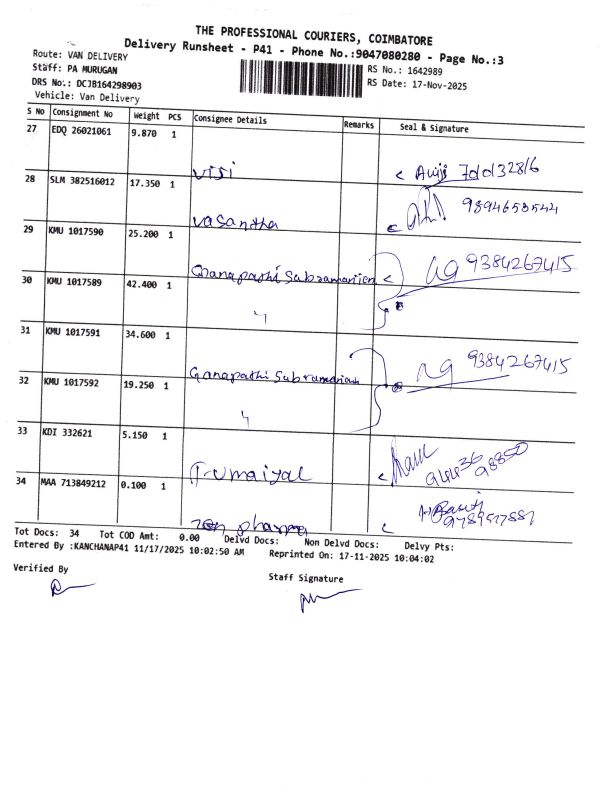 THE PROFESSIONAL COURIERS, COIMBATORE
Delivery Runsheet - P41 - Phone No.:9047080280 - Page No.:3
Route: VAN DELIVERY
Staff: PA MURUGAN
RS No.: 1642989
DRS No.: DCJB164298903
RS Date: 17-Nov-2025
Vehicle: Van Delivery
S No Consignment No Weight PCS Consignee Details Remarks Seal & Signature
27 EDQ 26021061 9.870 1
visi
28 SLM 382516012 17.350 1
vasantha 9894658544
29 KMU 1017590 25.200 1
Ganapathi Subramanien 9384267415
30 KMU 1017589 42.400 1
"
31 KMU 1017591 34.600 1
Ganapathi Subramaniam 9384267415
32 KMU 1017592 19.250 1
"
33 KDI 332621 5.150 1
T-umaiyal
34 MAA 713849212 0.100 1
pharma
Tot Docs: 34 Tot COD Amt: 0.00 Delvd Docs: Non Delvd Docs: Delvy Pts:
Entered By :KANCHANAP41 11/17/2025 10:02:50 AM Reprinted On: 17-11-2025 10:04:02
Verified By
Staff Signature